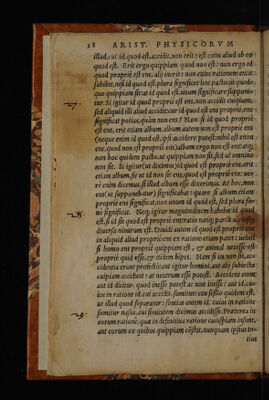 28 ARIST. PHYSICORVM
illud, cui id, quod est, accidit, non erit: est enim aliud ab eo
quod est. Erit ergo quippiam quod non est: non ergo id
quod proprie est ens, alij inerit: non enim rationem entis
subibit, nisi id quod est, plura significet hoc pacto, ut quod-
que quippiam sit: at id quod est, unum significare supponi-
27. tur. Si igitur id quod proprie est ens, non accidit cuipiam,
sed aliquid illi: aliud accidit, cur id quod est ens proprie, ens
significat potius, quàm non ens? Nam si id quod proprie
est ens, erit etiam album, album autem non est proprie ens
(neque enim id quod est, ipsi accidere potest: nihil est enim
ens, quod non est proprie ens) album ergo non est ens: atq;
non hoc quidem pacto, ut quippiam non sit, sed ut omnino
non sit. Si igitur (ut diximus) id quod est proprie ens, erit
etiam album, sic ut id non sit quod est proprie ens: ue-
rè enim dicemus, si illud album esse dixerimus. At hoc, non
ens (ut supponebatur) significabat: quare si album etiam
proprie ens significat, non unum id quod est, sed plura sa-
28. nè significat. Neq; igitur magnitudinem habebit id quod
est, si id sit quod est proprie ens: ratio nanq; partis
diuersa nimirum est. Diuidi autem id quod est proprie ens
in aliquid aliud proprie ens ex ratione etiam patet: ueluti
si homo ens proprie quippiam est, & animal necesse est
proprie quid esse, & itidem bipes. Nam si ens non sit, ac-
cidentia erunt profectò: aut igitur homini, aut alij subiecto
cuipiam accident: at neutrum esse potest. Accidens enim
aut id dicitur, quod inesse potest ac non inesse: aut id, cu-
ius in ratione id, cui accidit, sumitur: ceu sessio quidem est,
ut illud quod separatur: simitas autem id, cuius in ratione
29. sumitur nasus, cui simitatem dicimus accidisse. Præterea in
eorum ratione, quæ in definitiua ratione cuiuspiam insunt,
aut eorum ex quibus quippiam constat, nunquam ipsius to-
tius